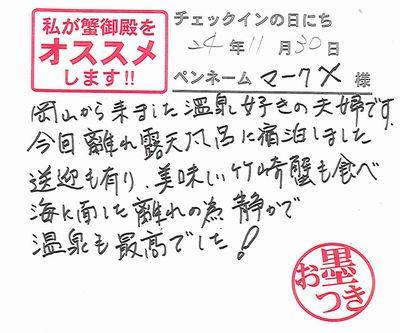 私が蟹御殿を
オススメ
します!!
チェックインの日にち
24年11月30日
ペンネーム マークX 様
岡山から来ました温泉好きの夫婦です
今回離れ露天风呂に宿泊しました
送迎も有り、美味しい竹崎蟹も食べ
海に面した離れの為静かで
温泉も最高でした!
お墨つき